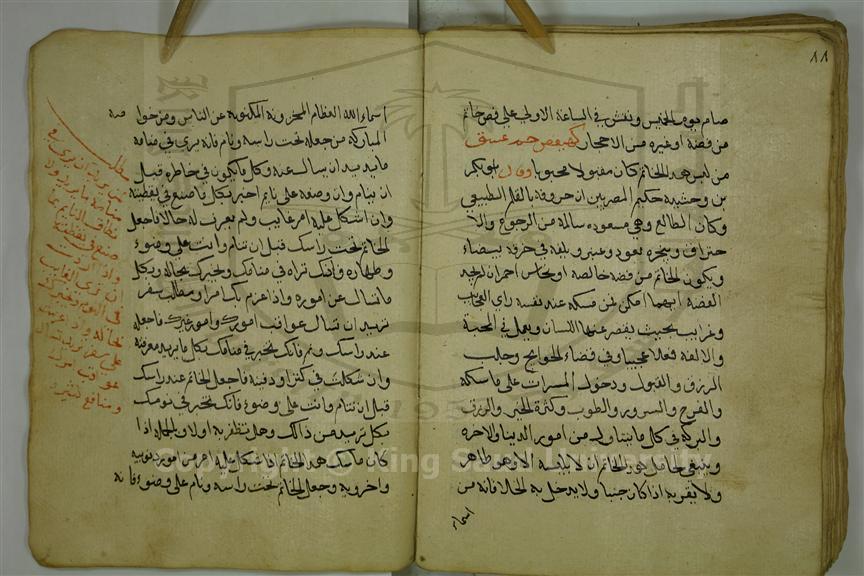 ٨٨
صام يوم الخميس ونقش في الساعة الاولي علي فص خاتم
من فضة او غيره من الاحجار كهيعص حمعسق
من لبس هذا الخاتم كان مقبولا محبوبا وقال ابو بكر
بن وحشيه حكيم المصريين ان حروفه بالقلم الطبيعي
وكان الطالع وهي مسعوده سالمة من الرجوع والا
حتراق وبخره بعود وعنبر ولفه في خرقة بيضاء
ويكون الخاتم من فضه خالصه او نحاس احمر ان لم يجد
الفضه ايهما امكن لمن مسكه عند نفسه راي العجايب
وغرايب بحيث يقصر عنها اللسان ويعمل في المحبة
والالفة فعلا عجيبا وفي قضاء الحوايج وجلب
الرزق والقبول ودخول المسرات علي ماسكه
والفرح والسرور والطرب وكثرة الخير والرزق
والبركة في كل ما يتناوله من امور الدنيا والاخره
وينبغي حامل هذا الخاتم ان لا يلبسه الا وهو طاهر
ولا يقربه اذا كان جنبا ولا يدخل به الخلا فانه من
اسماء
اسماء الله العظام المخزونة المكنونه عن الناس ومن خوا صه
المباركة من جعله تحت راسه ونام فانه يري في منامه
ما يريد ان يسال عنه وكل ما يكون في خاطره قبل
ان ينام وان وضعه علي نايم اخبر بكل ما صنع في يقظته
وان اشكل عليه امر غايب ولم يعرف له حالا فاجعل
الخاتم تحت راسك قبل ان تنام وانت علي وضوء
وطهاره فانك تراه في منامك ويخبرك بحاله وبكل
ما تسال عن اموره واذا عزم بك امر او مطلب سفر
تريد ان تسال عواقب امورك وامور غيرك فاجعله
عند راسك ونم فانك تخبر في منامك بكل ما تريد معرفته
وان شككت في كنز او دفينه فاجعل الخاتم عند راسك
قبل ان تنام وانت علي وضوء فانك تخبر في نومك
بكل تريد من ذالك وهل تظفر به اولا وبالجملة اذا
كان ماسك هذا الخاتم اذا شكل عليه امر من امور دنيويه
واخرويه وجعل الخاتم تحت راسه ونام علي وضوء فانه
مطلب
من يريد ان يري في
منامه ما يريد وان
صنع في يقظته
واذا اردت
ان تري الغايب
في النوم ويخبرك
بحاله واذا عزمت
علي سفر تريد تسال
عواقب امرك
ومنافع كثيره
Copyright © King Saud University